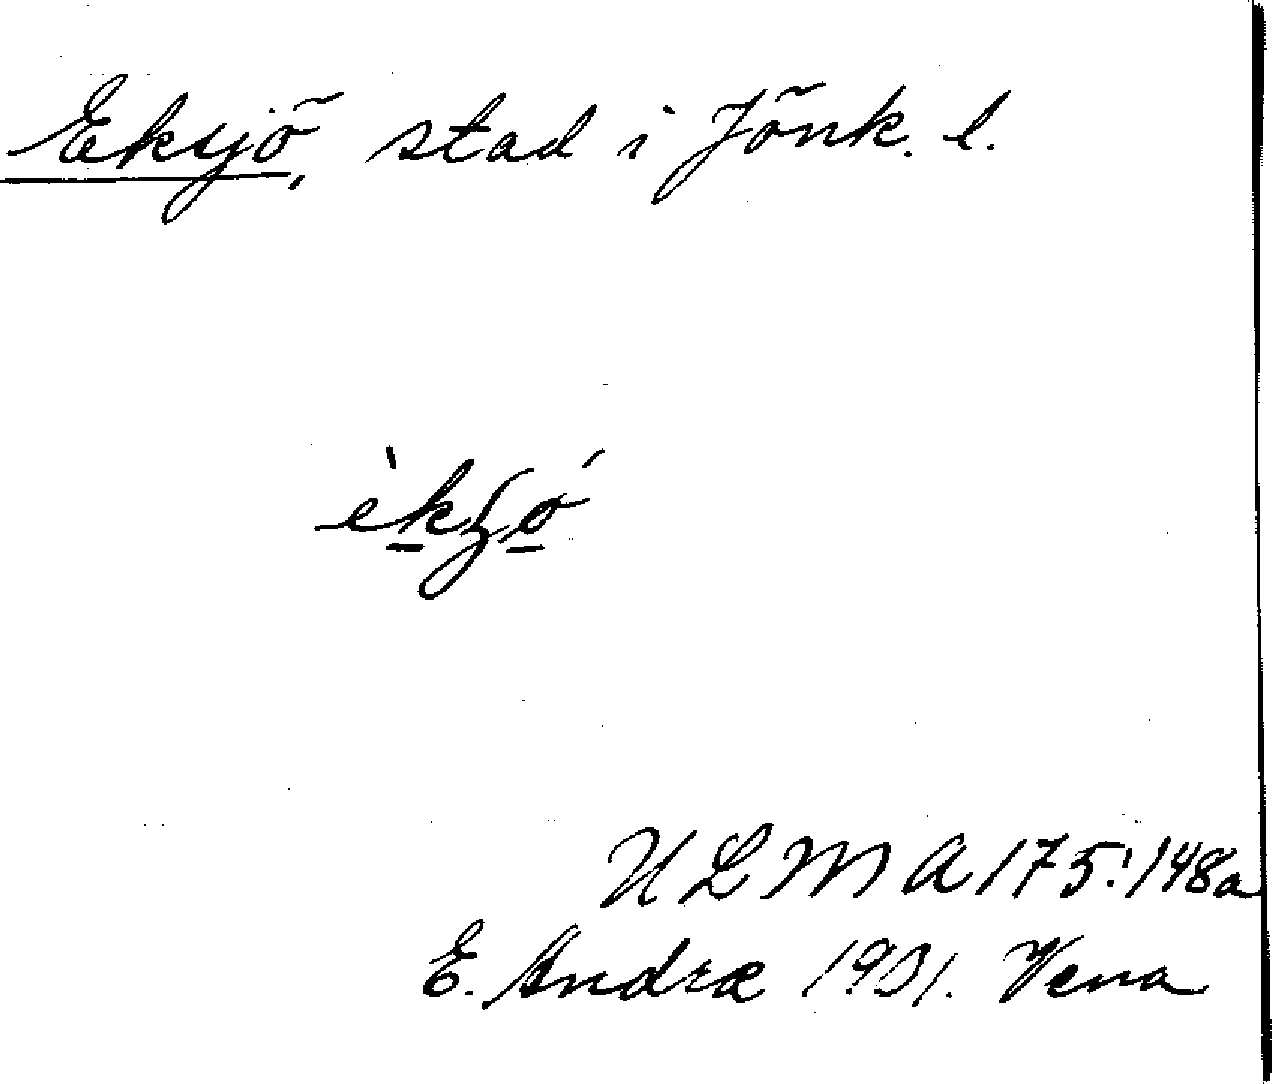 Eksjö, stad i Jönk. l.
ULMA 175:148a
E. Andræ 1901. Vena